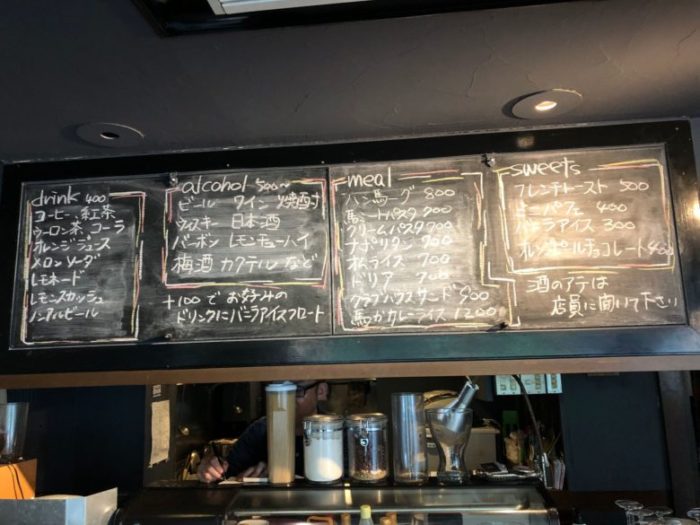 drink 400
コーヒー、紅茶
ウーロン茶、コーラ
オレンジジュース
メロンソーダ
レモネード
レモンスカッシュ
ノンアルビール
alcohol 500〜
ビール ワイン 焼酎
ウィスキー 日本酒
バーボン レモンチューハイ
梅酒 カクテル など
+100で お好みの
ドリンクにバニラアイスフロート
meal
ハン馬ーグ 800
馬ートパスタ 700
クリームパスタ 700
ナポリタン 700
オムライス 700
ドリア 700
クラブハウスサンド 900
馬かカレーライス 1200
sweets
フレンチトースト 500
ミニパフェ 400
バニラアイス 300
オルゴールチョコレート 400
酒のアテは
店員に聞いて下さい